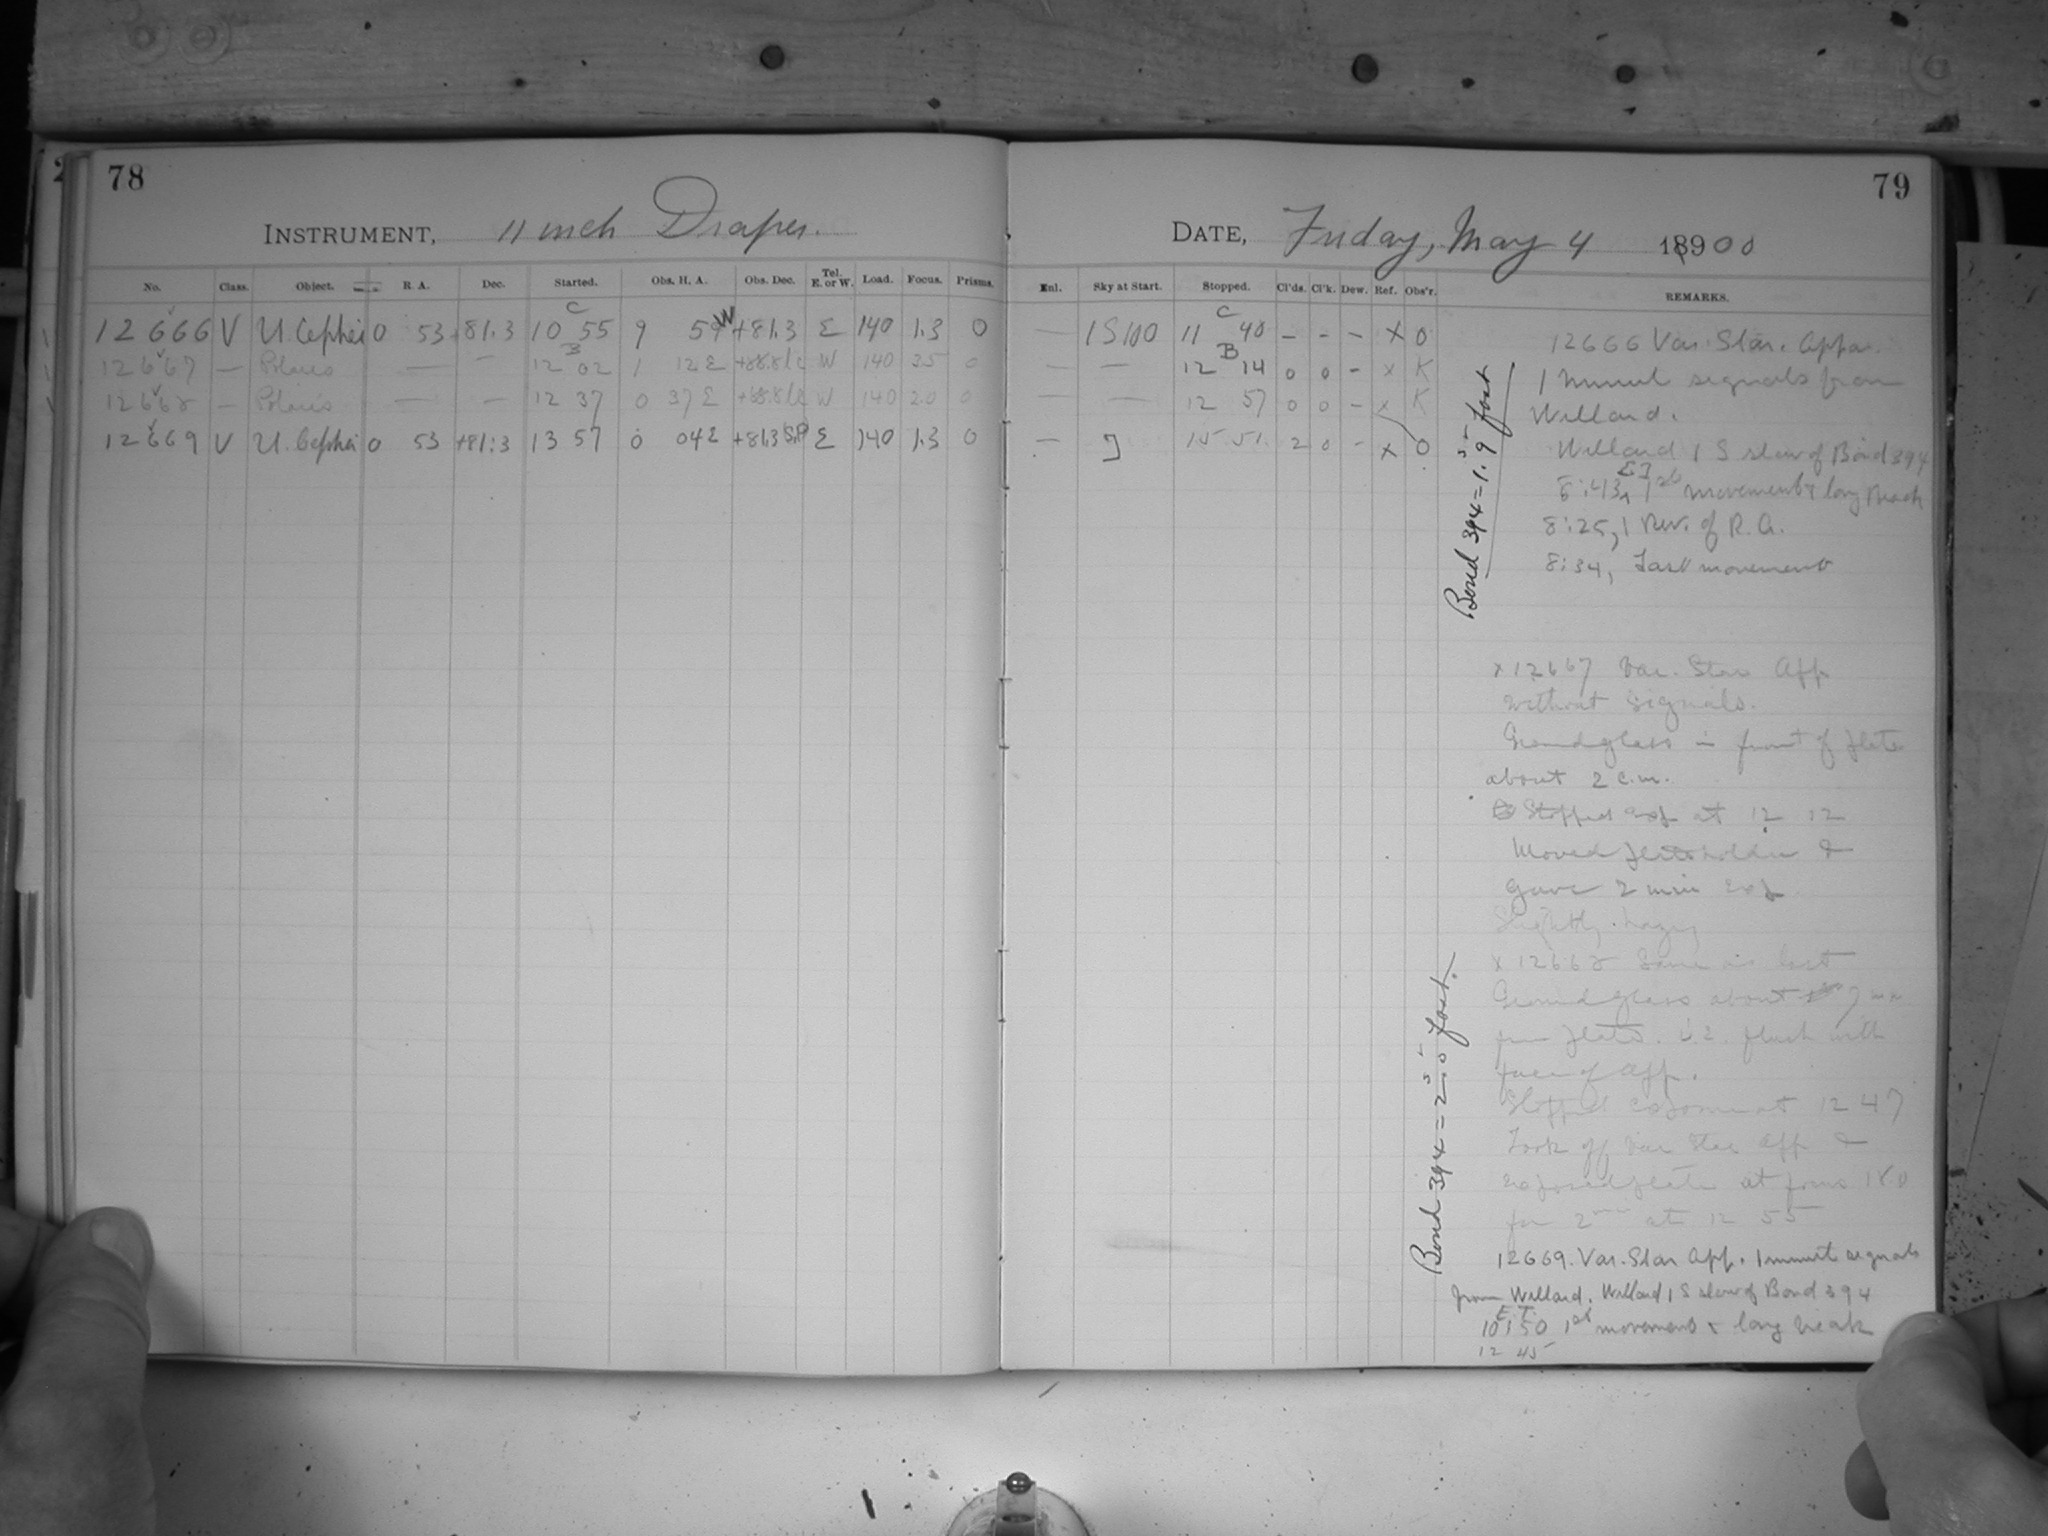 78
INSTRUMENT, 11 inch Draper.
No. Class. Object. R. A. Dec. Started. Obs. H. A. Obs. Dec. Tel. E. or W. Load. Focus. Prisms.
12666 V U. Cephei 0 53 +81.3 10 C 55 9 59 W +81.3 E 140 1.3 0
12667 — Polaris — — 12 B 02 1 12 E +88.8 W 140 3.5 0
12668 — Polaris — — 12 37 0 37 E +88.8 W 140 2.0 0
12669 V U. Cephei 0 53 +81.3 13 57 0 04 E +81.3 S.P. E 140 1.3 0
79
DATE, Friday, May 4 1900
Enl. Sky at Start. Stopped. Cl'ds. Cl'k. Dew. Ref. Obs'r. REMARKS.
— 1S100 11 C 40 – – – x O
— — 12 B 14 0 0 – x K
— — 12 57 0 0 – x K
— 15 51 2 0 – x O
12666 Var. Star. Appa.
1 Minute signals from
Willard.
Willard 1 S slow of Bond 394
8:43, E.T. 1st movement & long break
8:25, 1 Rev. of R.A.
8:34, Last movement
Bond 394 = 1.9s fast
x 12667 Var. Star App
without signals.
Ground glass in front of plate
about 2 c.m.
Stopped exp at 12 12
Moved plateholder &
gave 2 min Exp
Slightly hazy
x 12668 Same as last
Ground glass about 7 mm
from plate. i.e. flush with
face of App.
Stopped exposure at 12 47
Took off Var Star App &
exposed plate at focus 18.0
for 2 min at 12 55
Bond 394 = 2.0s fast.
12669. Var. Star App. 1 minute signals
from Willard. Willard 1 S slow of Bond 394
10:50 E.T. 1st movement & long break
12 45